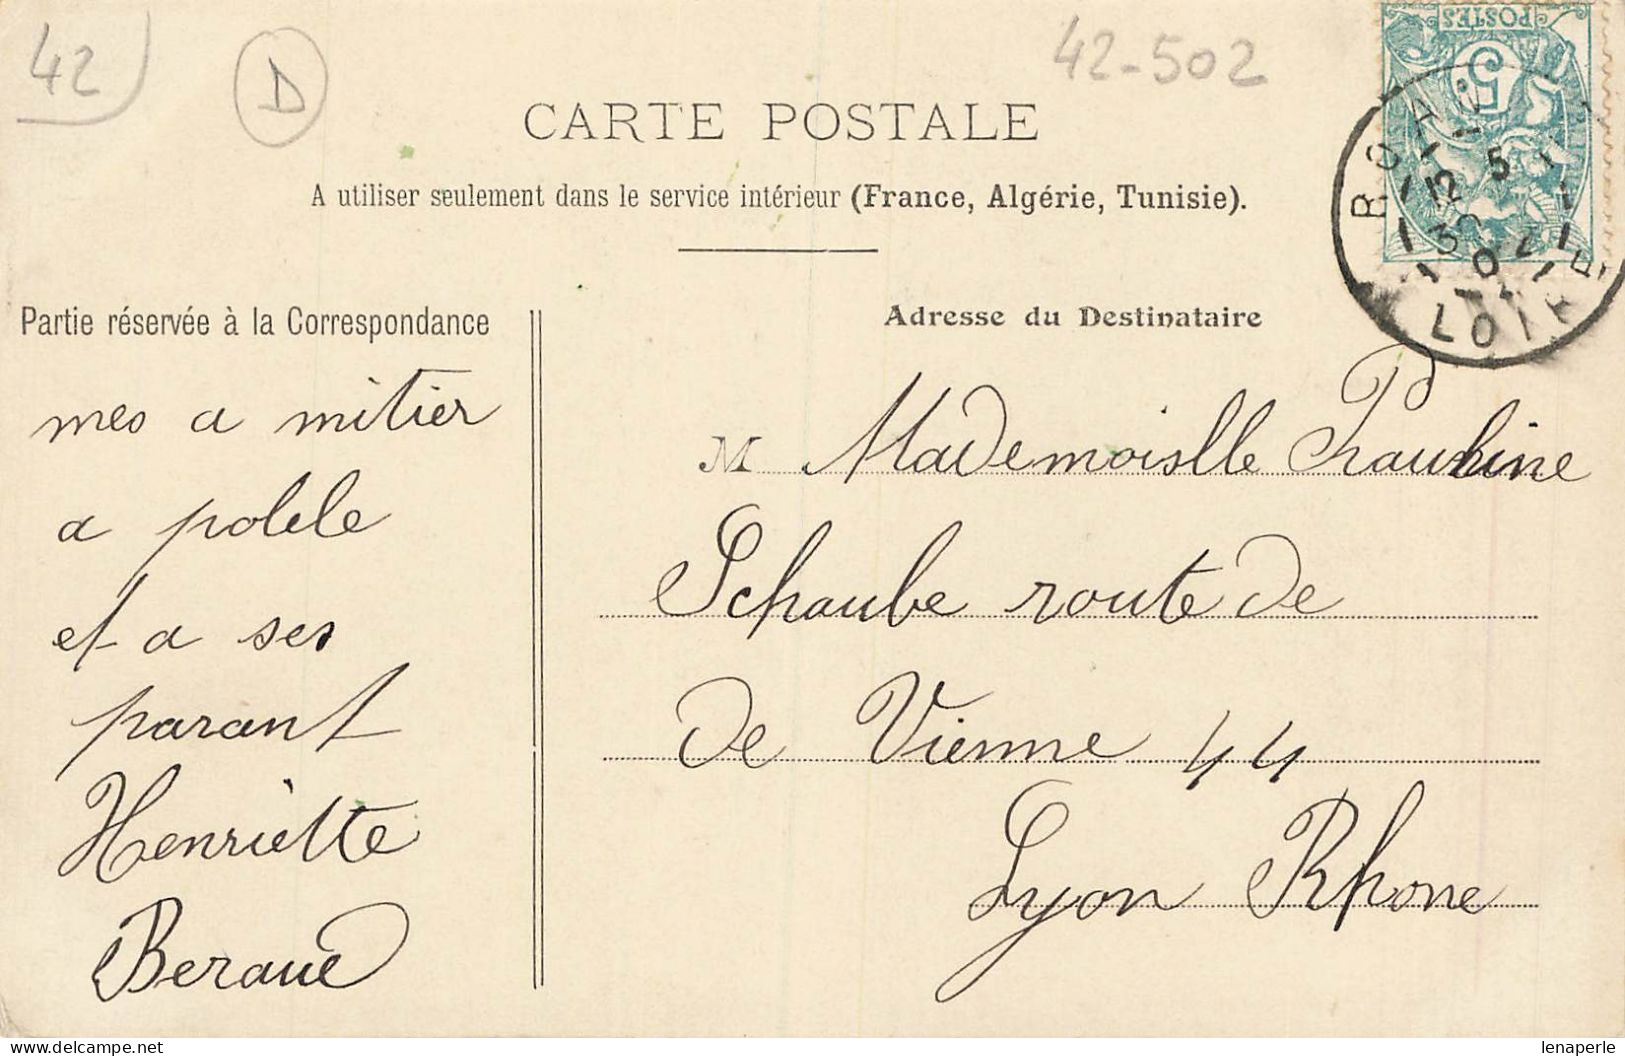 42
D
42-502
POSTES
5
CARTE POSTALE
A utiliser seulement dans le service intérieur (France, Algérie, Tunisie).
12 5
30
LOIRE
Partie réservée à la Correspondance
Adresse du Destinataire
mes a mitier
a polele
et a ses
parant
Henriette
Beraud
M Mademoislle
Schaube route de
de Vienne 44
Lyon Rhone
lenaperle